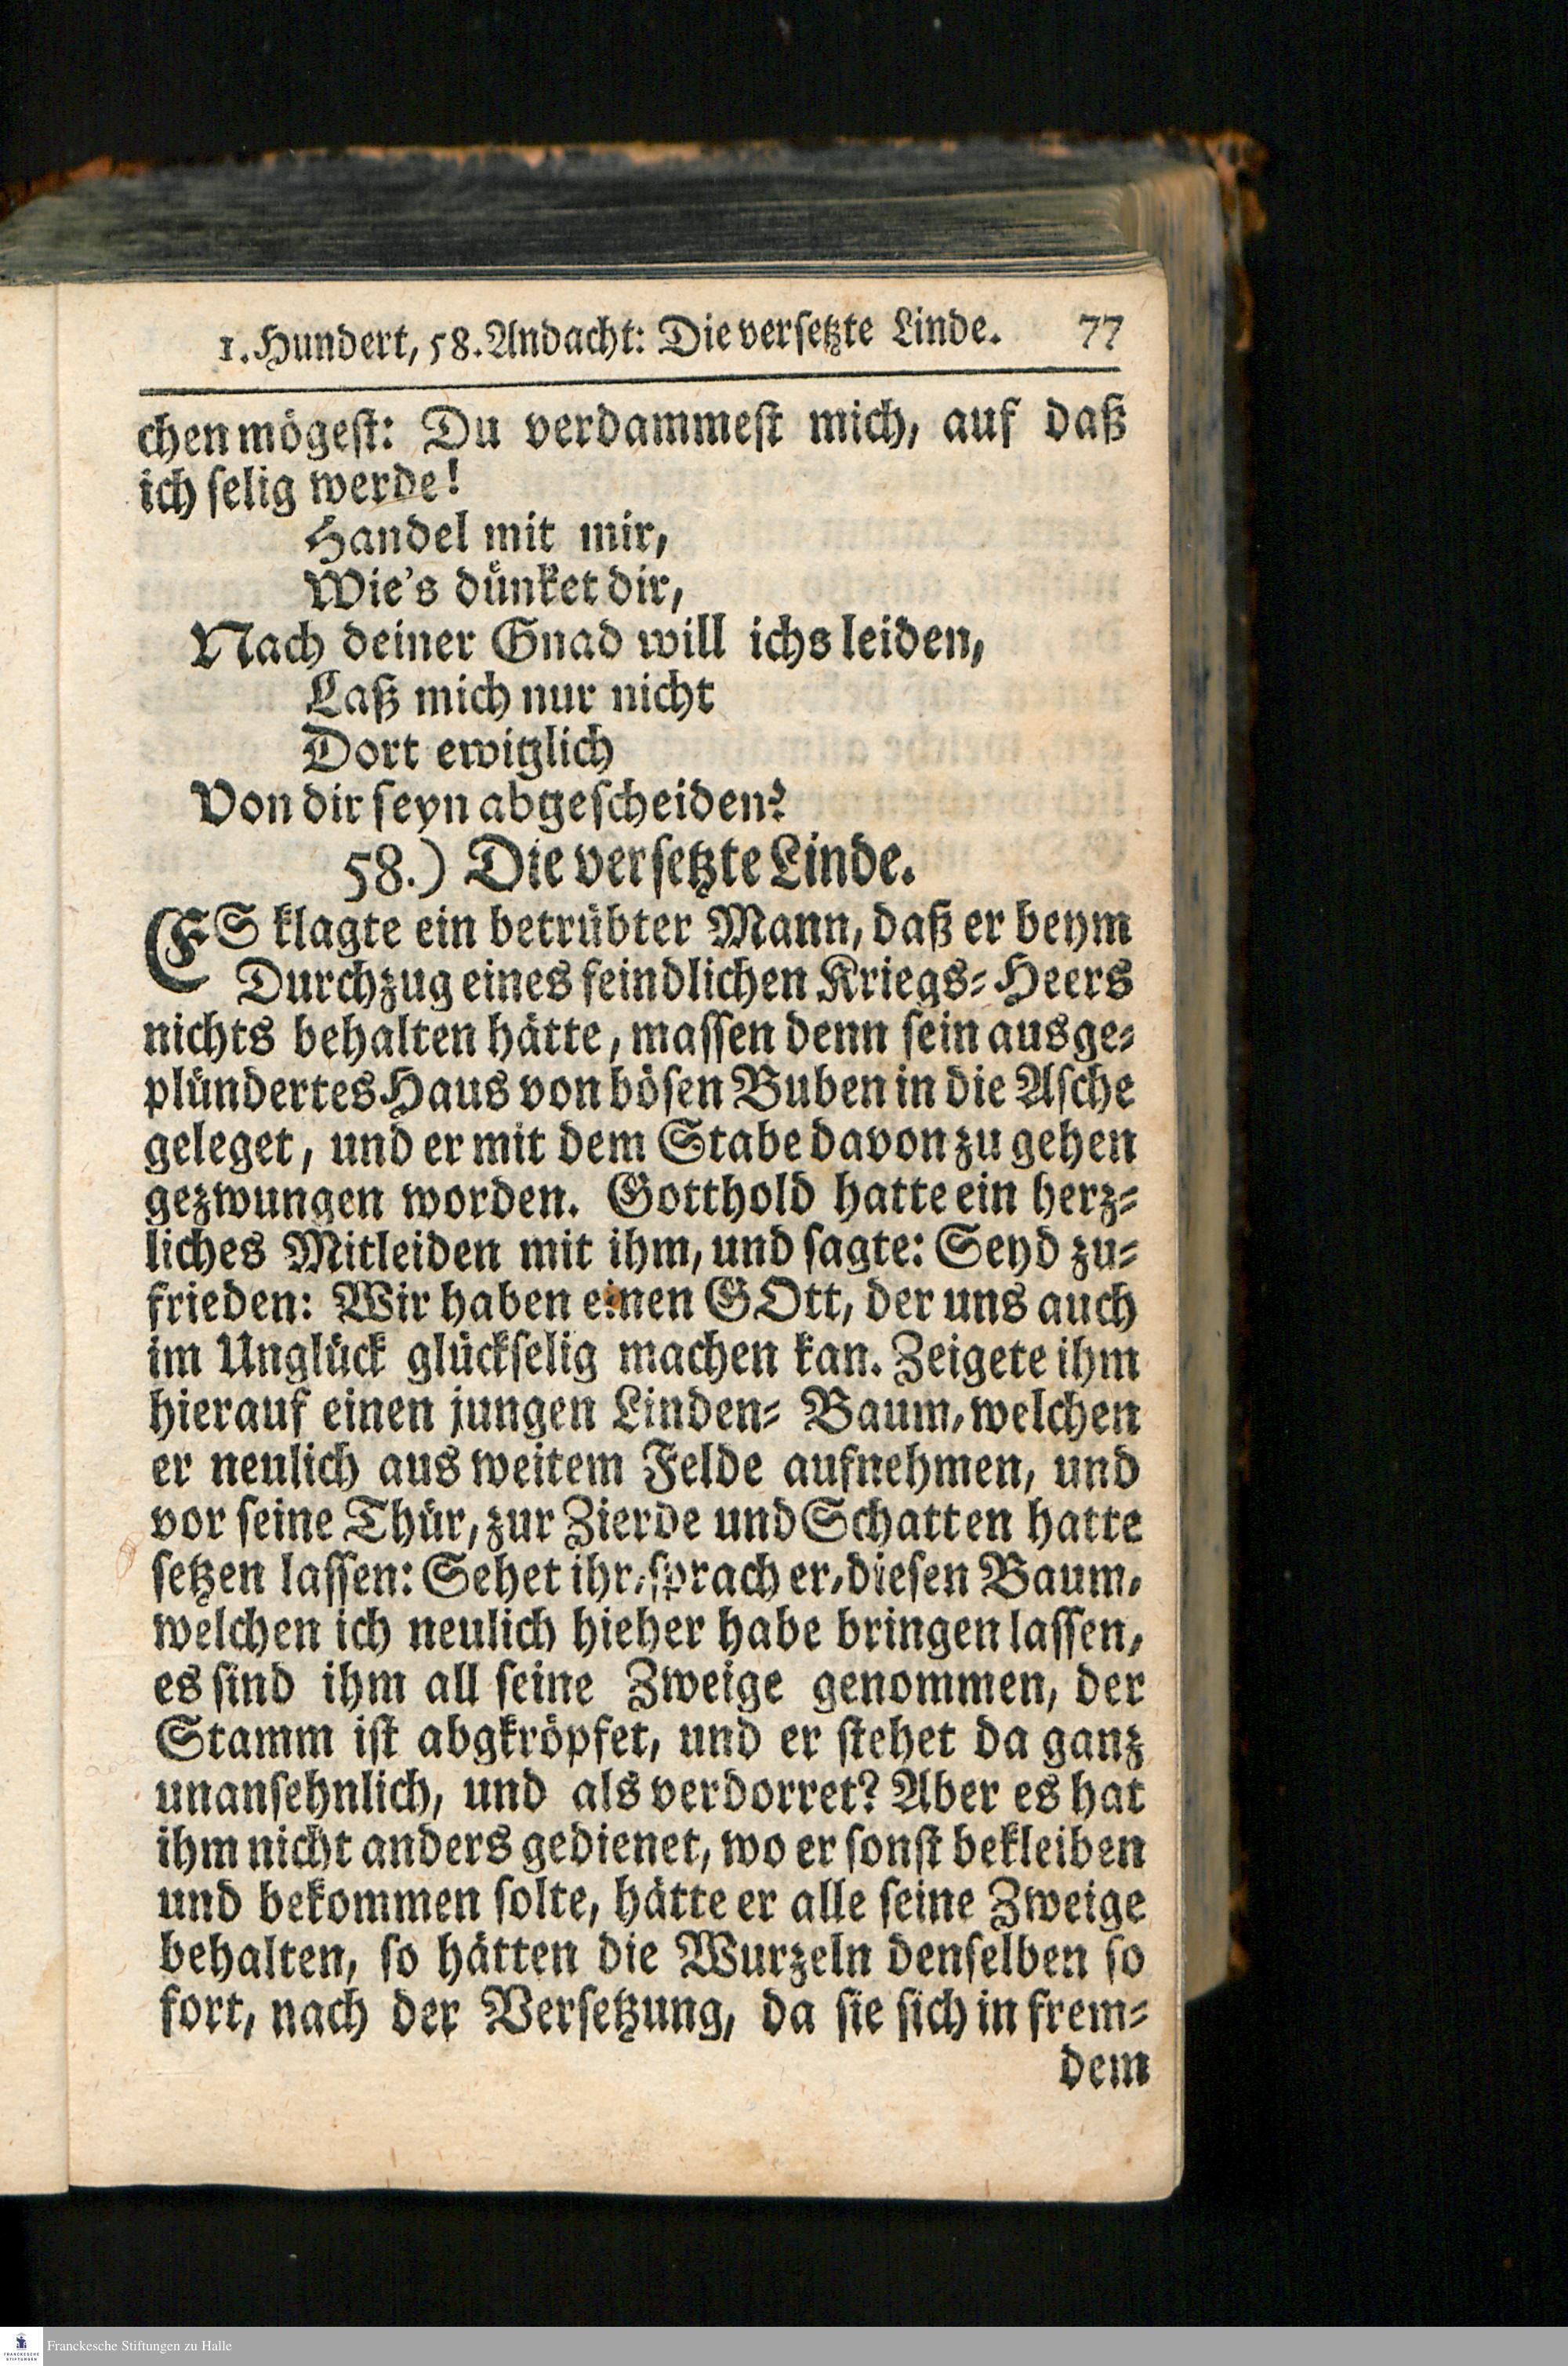 1. Hundert, 58. Andacht: Die versetzte Linde. 77
chen mögest: Du verdammest mich, auf daß
ich selig werde!
Handel mit mir,
Wie's dünket dir,
Nach deiner Gnad will ichs leiden,
Laß mich nur nicht
Dort ewiglich
Von dir seyn abgescheiden?
58.) Die versetzte Linde.
ES klagte ein betrübter Mann, daß er beym
Durchzug eines feindlichen Kriegs-Heers
nichts behalten hätte, massen denn sein ausge-
plündertes Haus von bösen Buben in die Asche
geleget, und er mit dem Stabe davon zu gehen
gezwungen worden. Gotthold hatte ein herz-
liches Mitleiden mit ihm, und sagte: Seyd zu-
frieden: Wir haben einen GOtt, der uns auch
im Unglück glückselig machen kan. Zeigete ihm
hierauf einen jungen Linden-Baum, welchen
er neulich aus weitem Felde aufnehmen, und
vor seine Thür, zur Zierde und Schatten hatte
setzen lassen: Sehet ihr, sprach er, diesen Baum,
welchen ich neulich hieher habe bringen lassen,
es sind ihm all seine Zweige genommen, der
Stamm ist abgkröpfet, und er stehet da ganz
unansehnlich, und als verdorret? Aber es hat
ihm nicht anders gedienet, wo er sonst bekleiben
und bekommen solte, hätte er alle seine Zweige
behalten, so hätten die Wurzeln denselben so
fort, nach der Versetzung, da sie sich in frem-
dem
Franckesche Stiftungen zu Halle
FRANCKESCHE
STIFTUNGEN